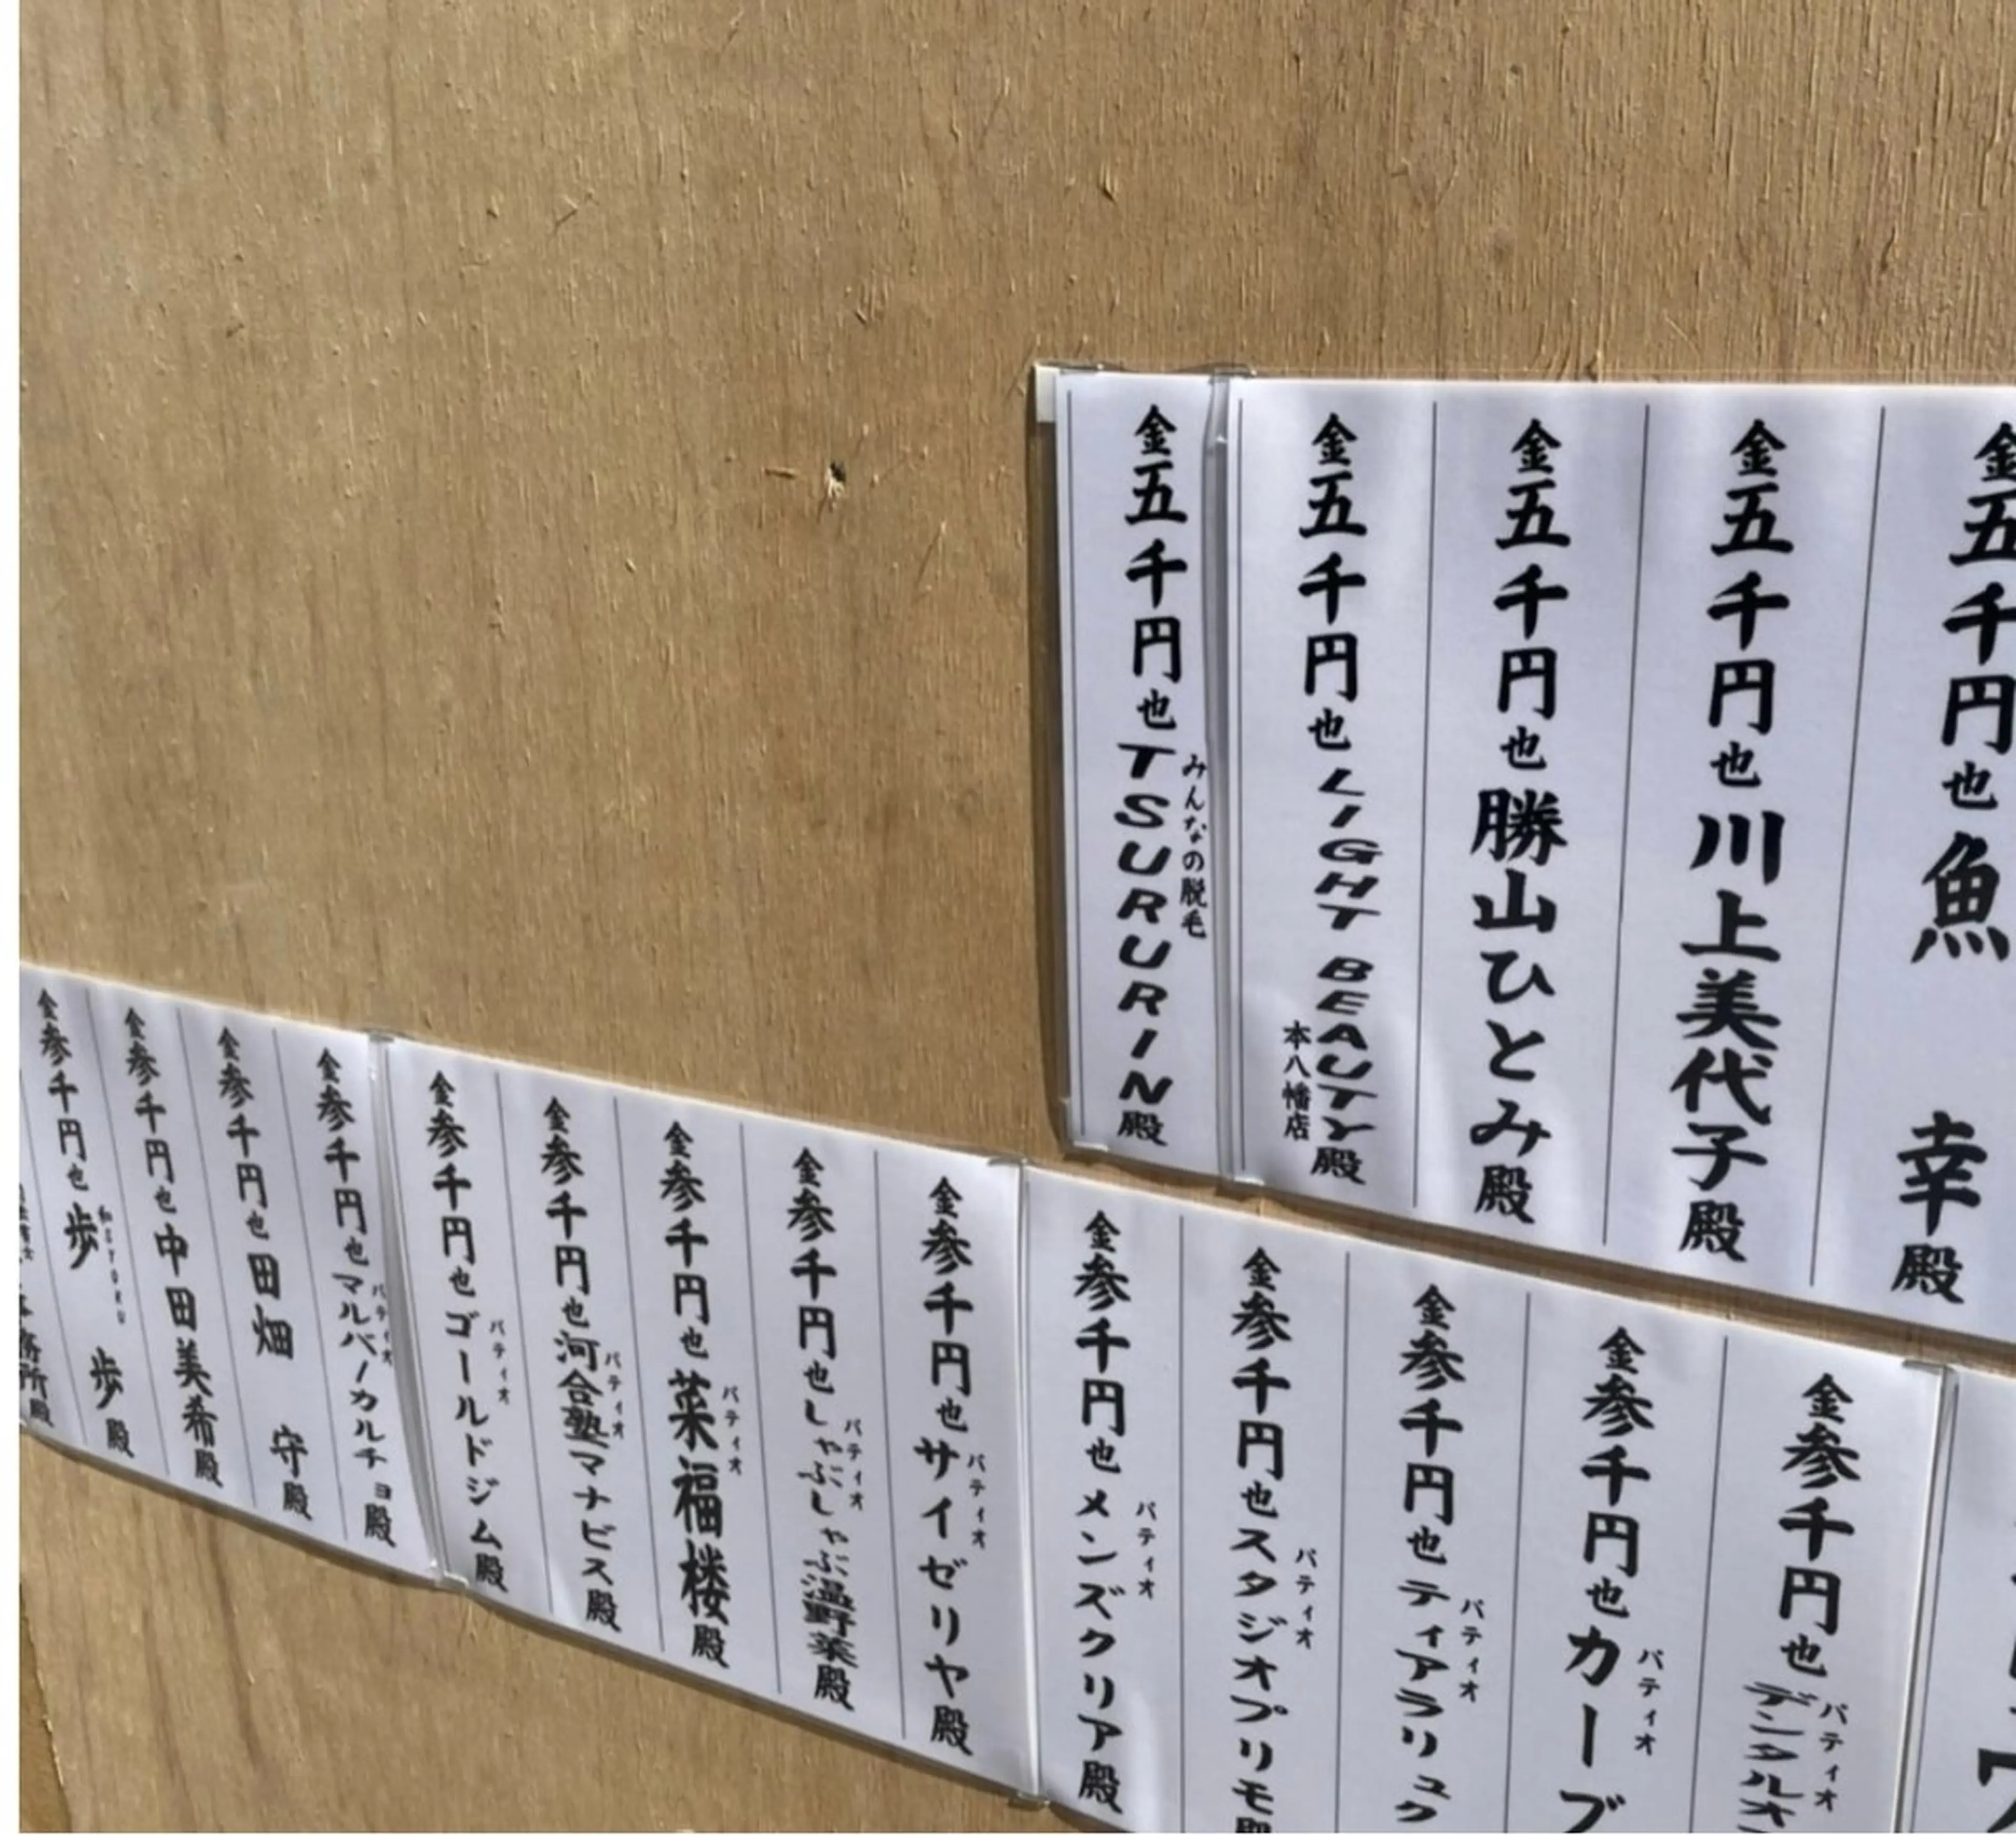 金五千円也 魚 幸殿
金五千円也 川上美代子殿
金五千円也 勝山ひとみ殿
金五千円也 LIGHT BEAUTY 本八幡店 殿
金五千円也 みんなの脱毛 TSURURIN殿
金参千円也 パティオ デンタルオ
金参千円也 パティオ カーブ
金参千円也 パティオ ティアラリュク
金参千円也 パティオ スタジオプリモ殿
金参千円也 パティオ メンズクリア殿
金参千円也 パティオ サイゼリヤ殿
金参千円也 パティオ しゃぶしゃぶ温野菜殿
金参千円也 パティオ 菜福楼殿
金参千円也 パティオ 河合塾マナビス殿
金参千円也 パティオ ゴールドジム殿
金参千円也 パティオ マルバーカルチョ殿
金参千円也 田畑 守殿
金参千円也 中田美希殿
金参千円也 歩 歩殿
務所殿